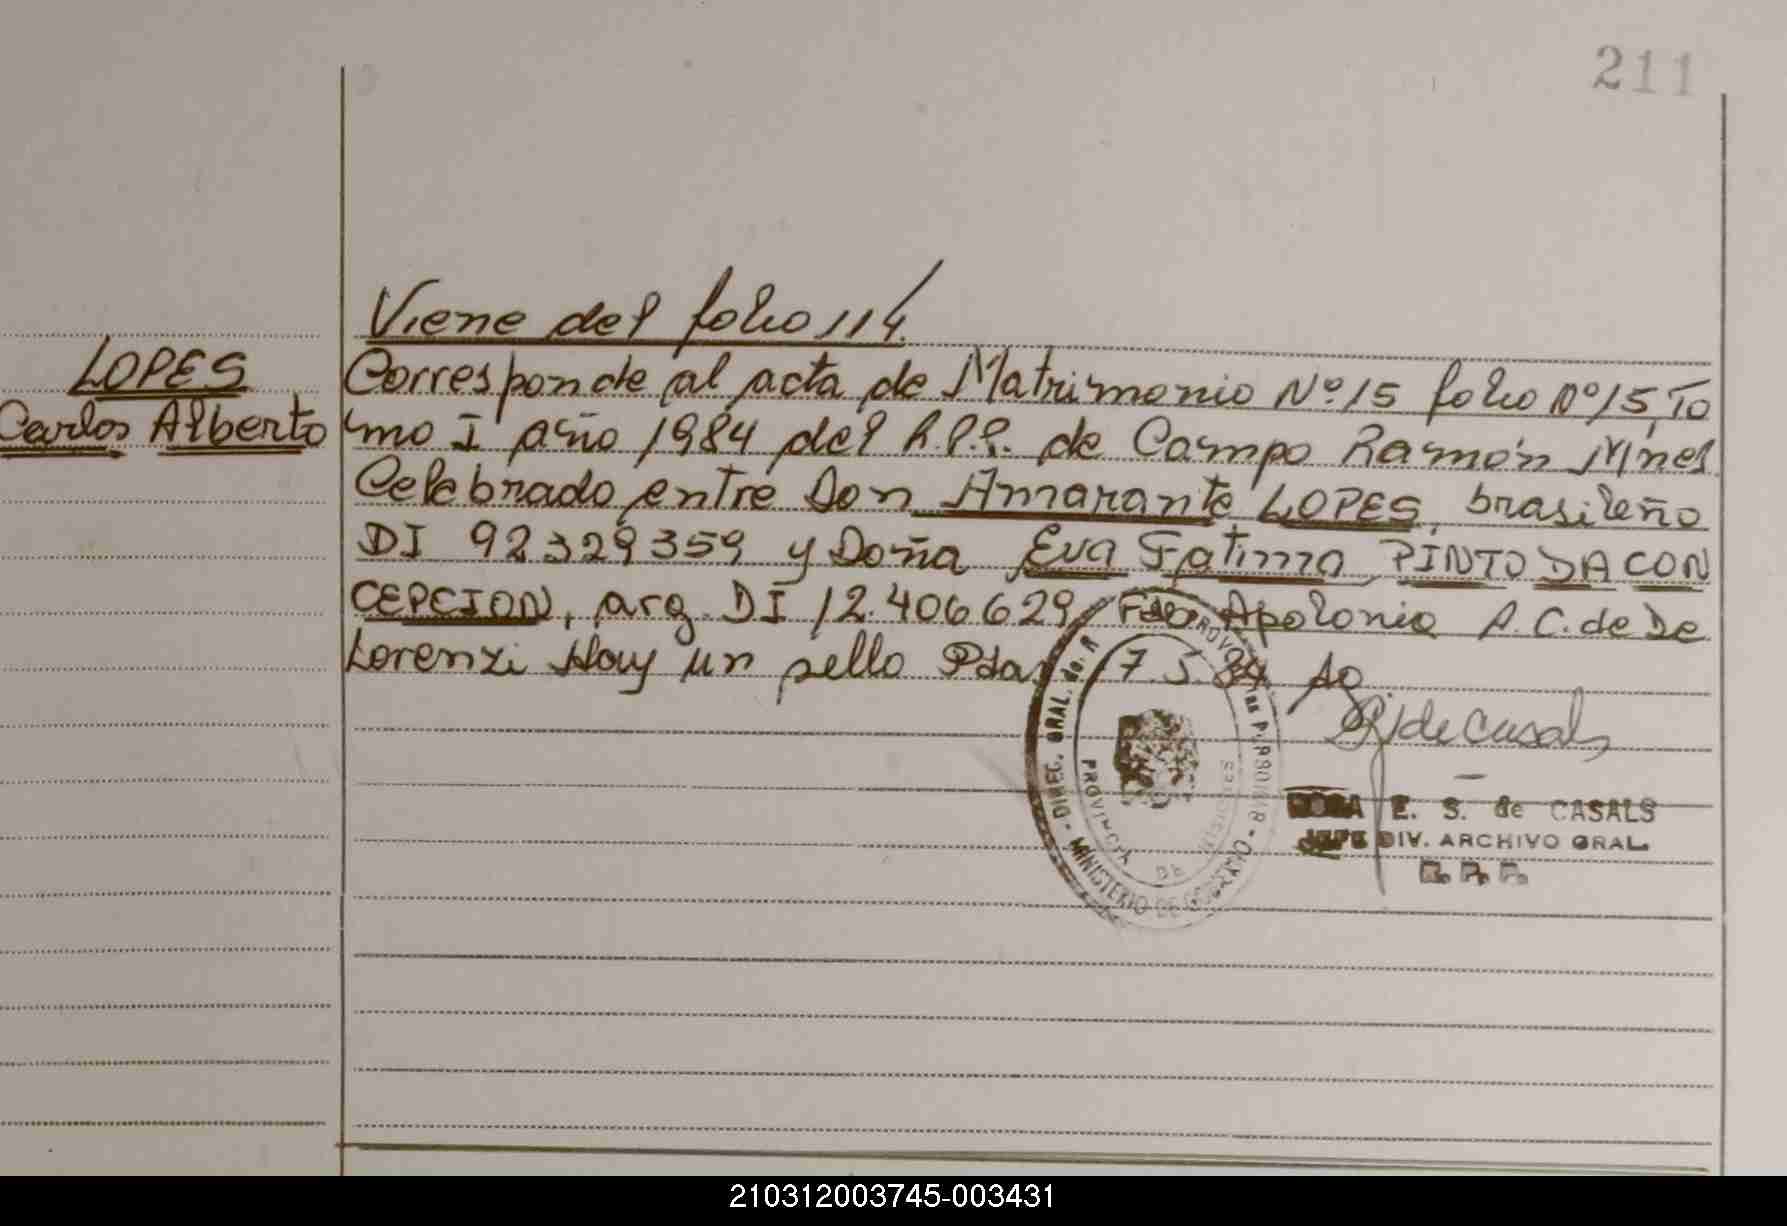 211
Viene del folio 114.
LOPES
Carlos Alberto
Corresponde al acta de Matrimonio Nº 15 folio nº 15, To
mo I año 1984 del R.P.P. de Campo Ramón Mnes
Celebrado entre Don Amarante LOPES, brasileño
DI 92329359 y Doña Eva Fatima PINTO DA CON
CEPCION, arg. DI 12.406629, Fdo Apolonia A. C. de De
Lorenzi Hay un sello Pdas 7.5.84 AQ
de Casals
DIREC. GRAL. de
MINISTERIO DE GOBIERNO
PROVINCIA DE MISIONES
ROSA E. S. de CASALS
JEFE DIV. ARCHIVO GRAL.
R. P. P.
210312003745-003431